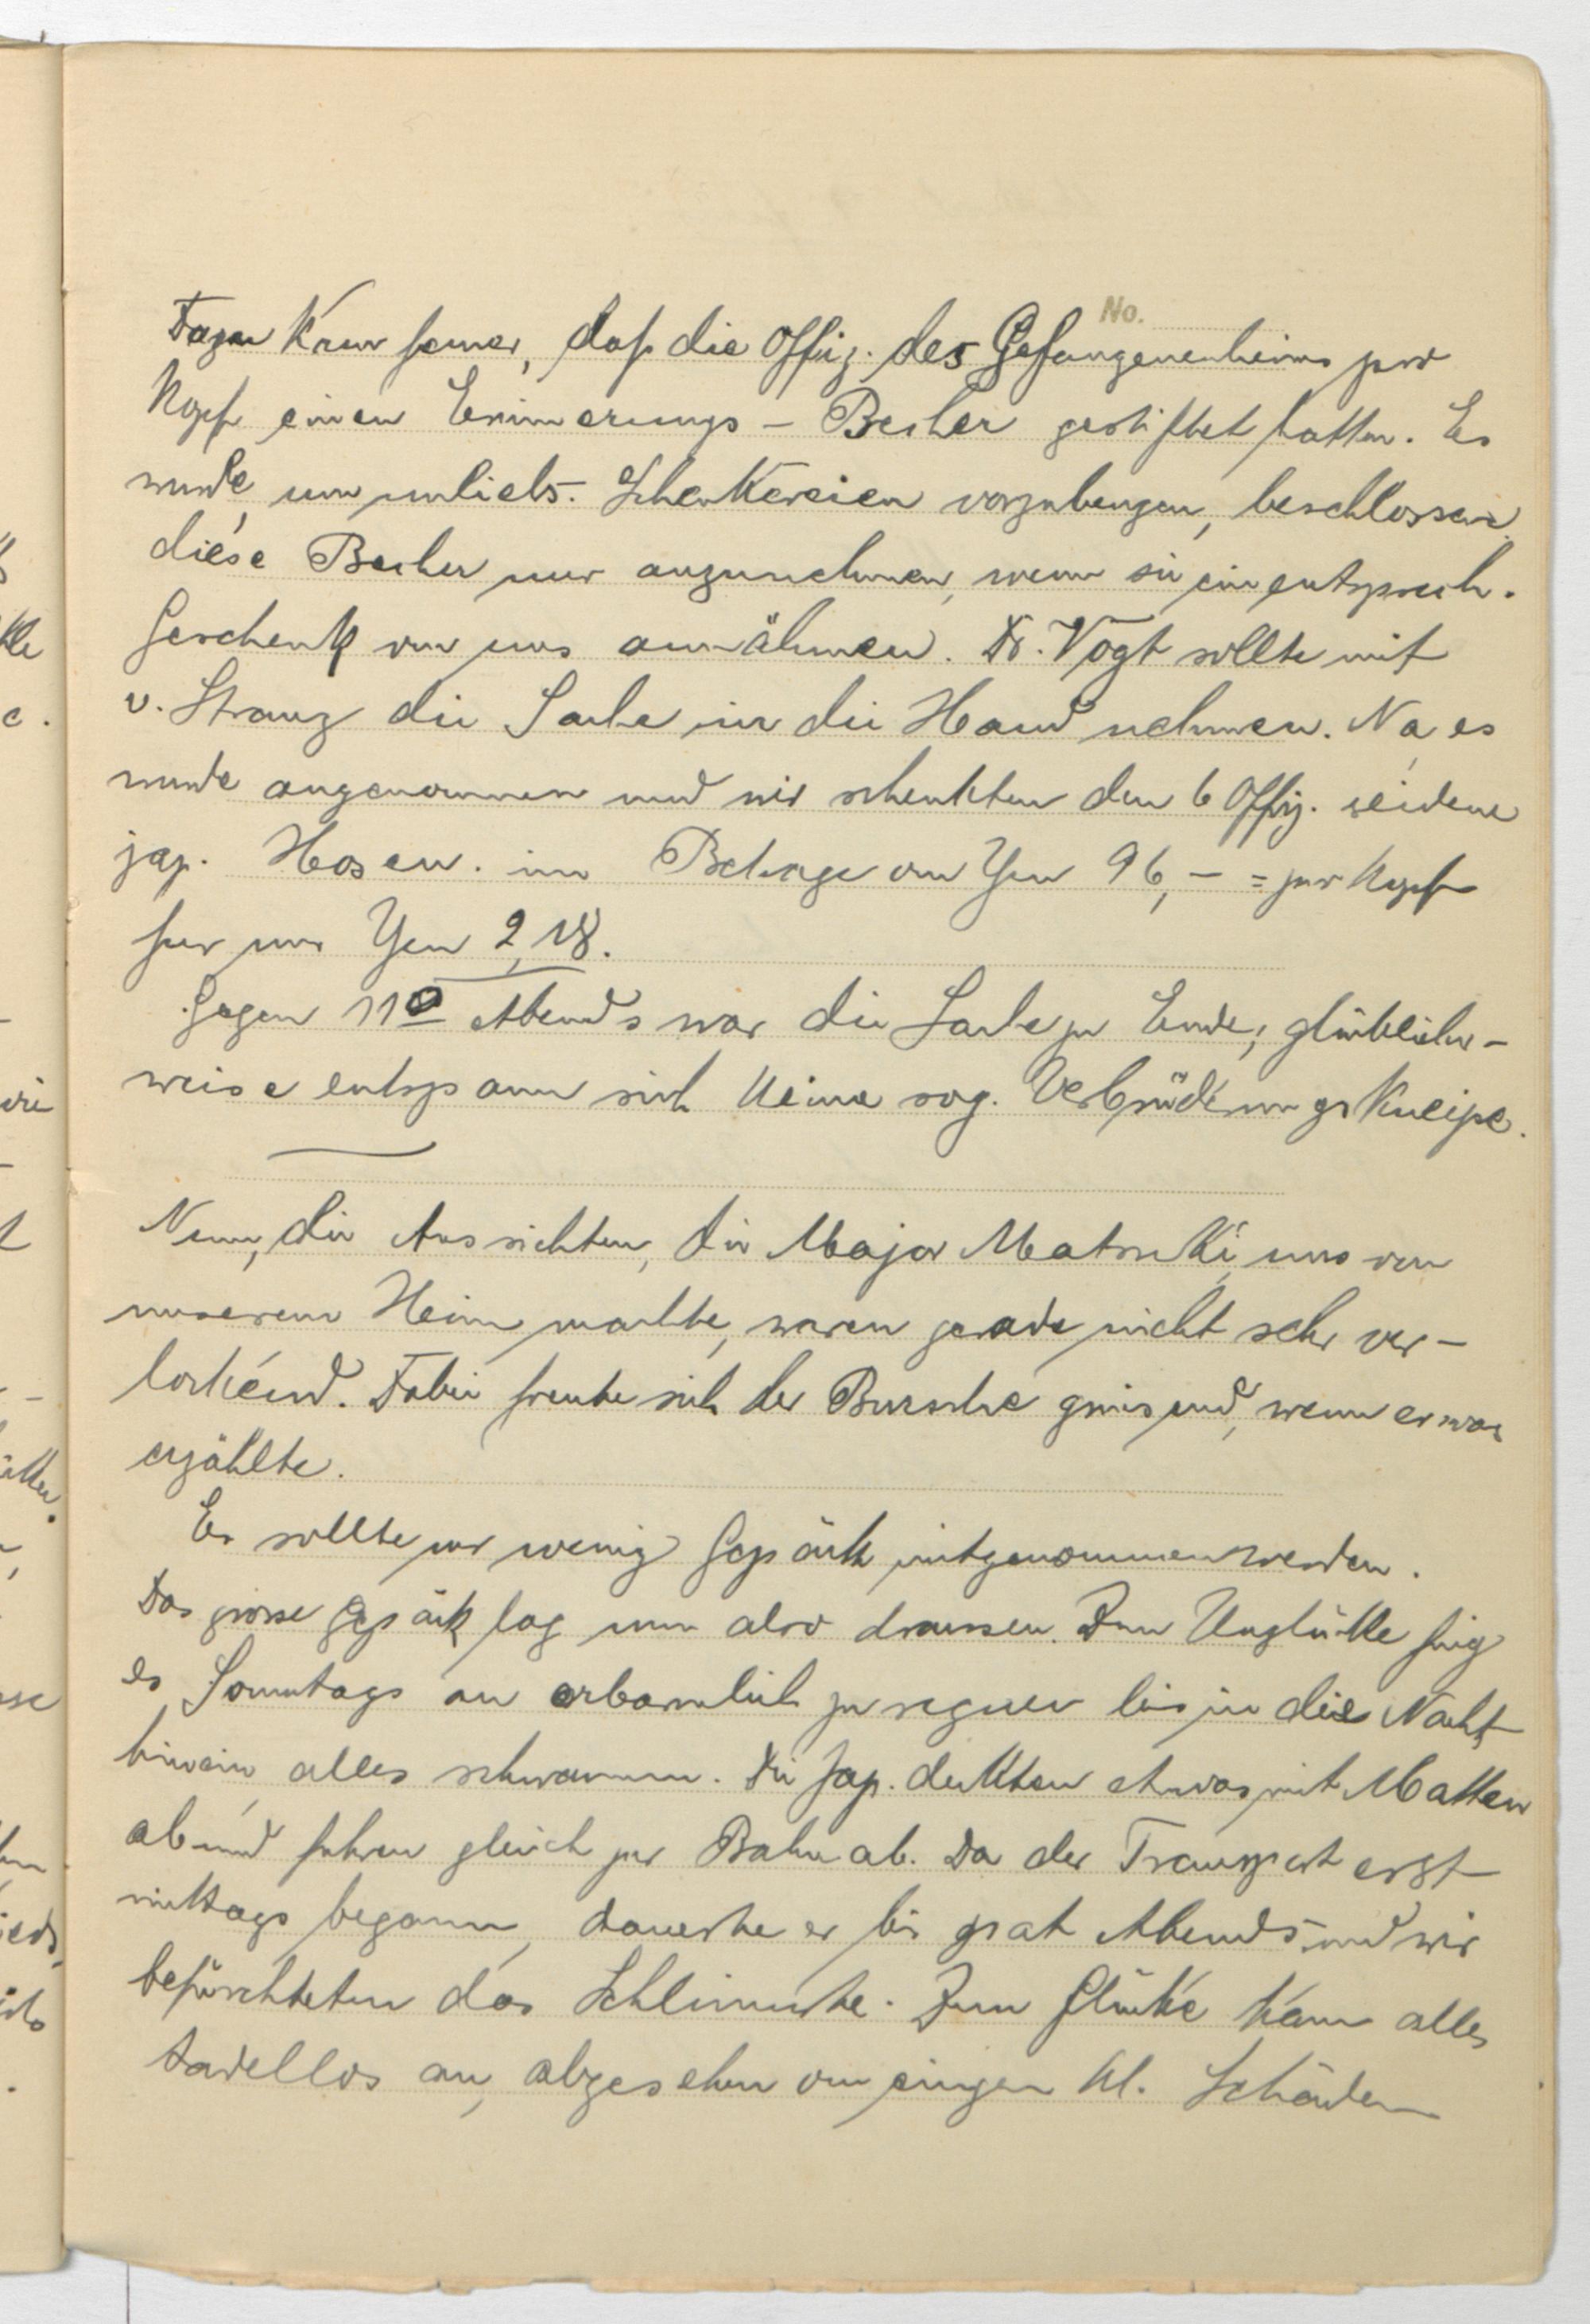 No.
Dazu kam ferner, daß die Offiz. des Gefangenenheims pro
Kopf einen Erinnerungs-Becher gestiftet hatten. Es
wurde, um unliebs. Schenkereien vorzubeugen, beschlossen
diese Becher nur anzunehmen, wenn sie ein entsprech.
Geschenk von uns annähmen. Dr. Vogt sollte mit
v. Stranz die Sache in die Hand nehmen. Na, es
wurde angenommen und wir schenkten den 6 Offiz. seidene
jap. Hosen. im Betrage von Yen 96,- = pro Kopf
für uns Yen 2,18.
Gegen 11⁰ Abends war die Sache zu Ende; glücklicher-
weise entspann sich keine sog. Verbrüderungskneipe.
Nun, die Aussichten, die Major Matsuki uns von
unserem Heim machte, waren gerade nicht sehr ver-
lockend. Dabei freute sich der Bursche grinsend, wenn er was
erzählte.
Es sollte nur wenig Gepäck mitgenommen werden.
Das grosse Gepäck lag nun also draussen. Zum Unglücke fing
es Sonntags an erbärmlich zu regnen bis in die Nacht
hinein, alles schwamm. Die Jap. deckten etwas mit Matten
ab und fuhren gleich zur Bahn ab. Da der Transport erst
mittags begann, dauerte er bis spät Abends und wir
befürchteten das Schlimmste. Zum Glücke kam alles
tadellos an, abgesehen von einigen kl. Schäden